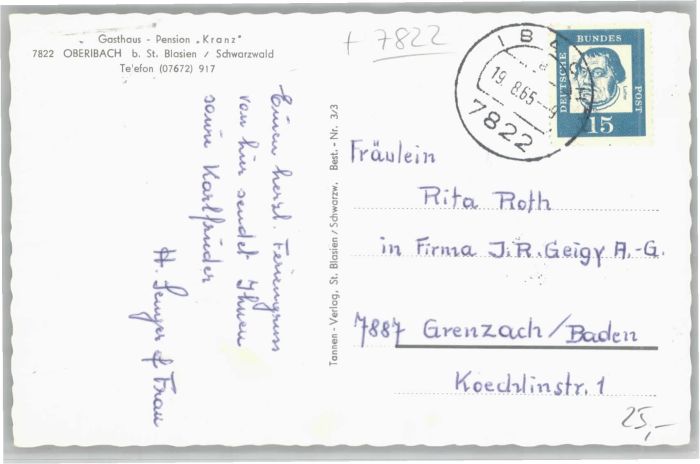 Gasthaus - Pension „Kranz"
7822 OBERIBACH b. St. Blasien / Schwarzwald
Telefon (07672) 917
+ 7822
IBA
19.8.65
7822
DEUTSCHE BUNDES POST
Luther
15
Einen herzl. Feriengruss
von hier sendet Ihnen
sowie
H. & Frau
Tannen - Verlag, St. Blasien / Schwarzw. Best. - Nr. 3/3
Fräulein
Rita Roth
in Firma J.R. Geigy A.-G.
7887 Grenzach/Baden
Koechlinstr. 1
25,-